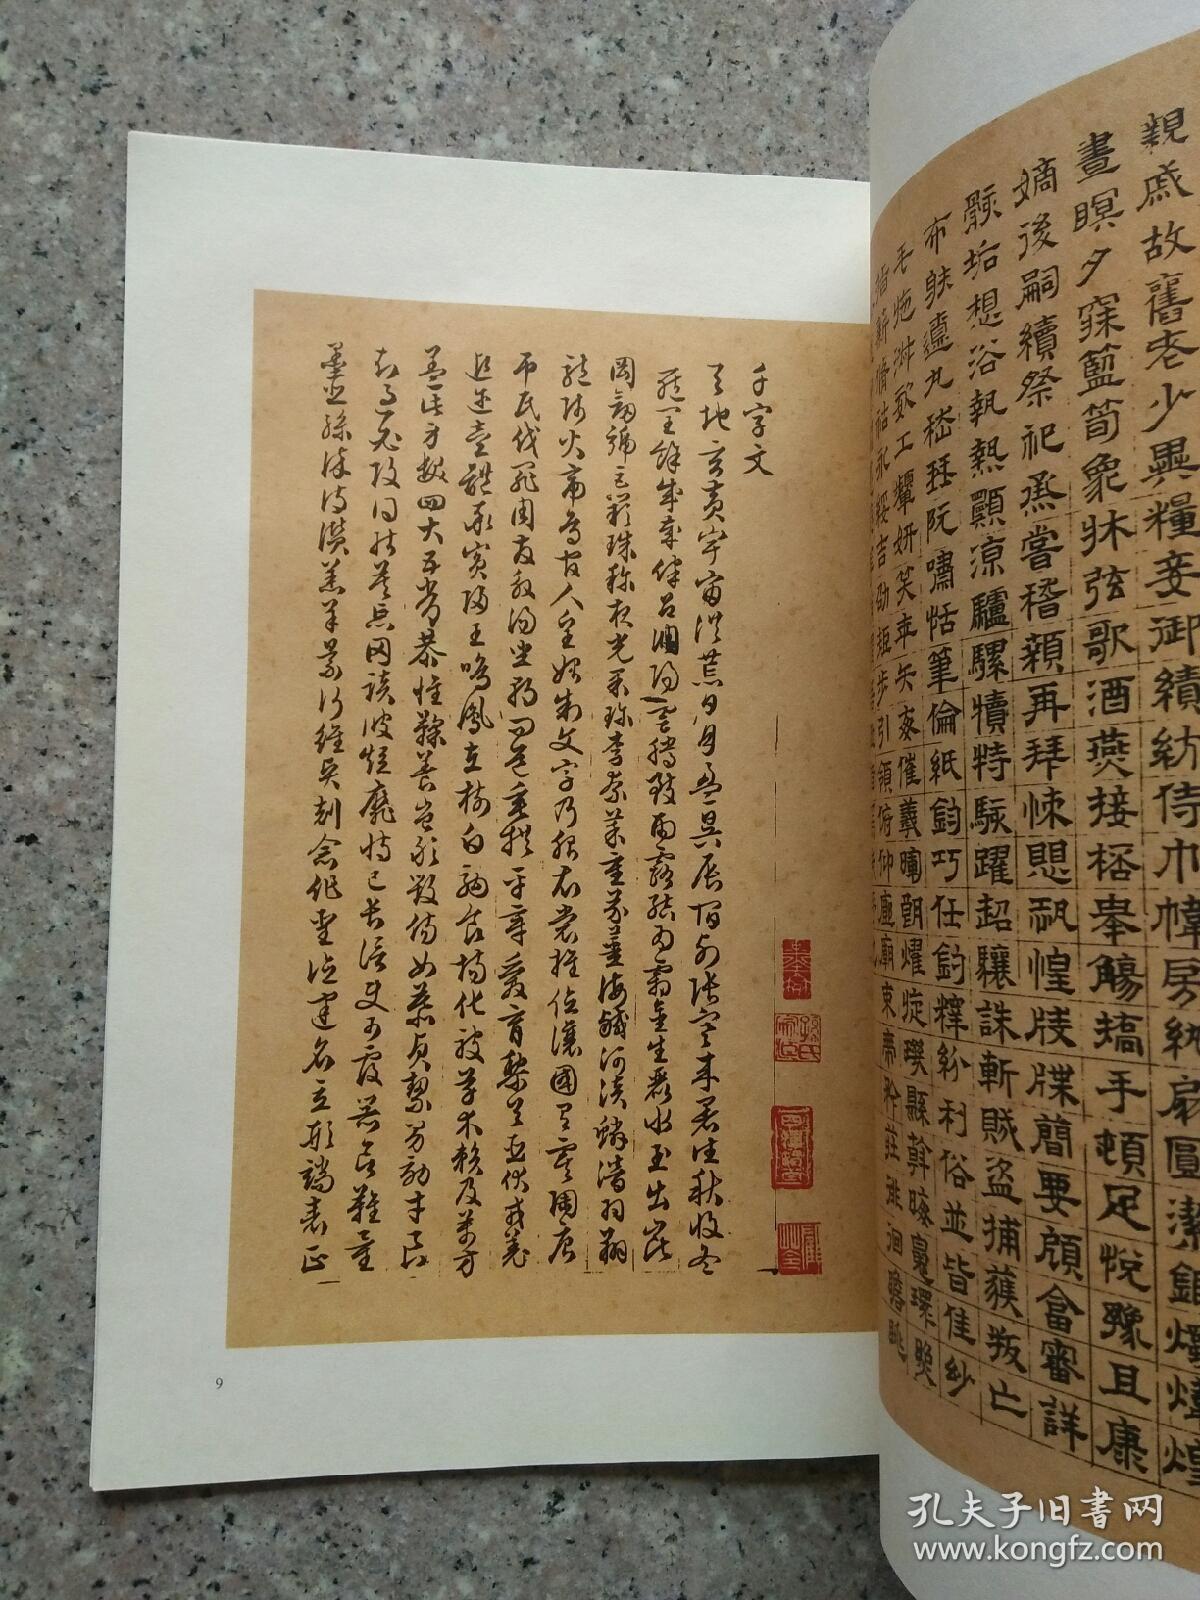 親戚故舊老少異糧妾御績紡侍巾帷房紈扇圓潔銀燭煒煌
晝瞑夕寐籃筍象牀弦歌酒燕接桮舉觴撟手頓足悅豫且康
嫡後嗣續祭祀烝嘗稽顙再拜悚愳恐惶牋牒簡要顧答審詳
骸垢想浴執熱願涼驢騾犢特駭躍超驤誅斬賊盜捕獲叛亡
布射遼丸嵇琴阮嘯恬筆倫紙鈞巧任釣釋紛利俗並皆佳妙
毛施淑姿工顰妍笑年矢每催羲暉朗曜璇璣懸斡晦魄環照
指薪脩祜永綏吉劭矩步引領俯仰廊廟束帶矜莊徘徊瞻眺
千字文
天地玄黃宇宙洪荒日月盈昃辰宿列張寒來暑往秋收冬
藏閏餘成歲律呂調陽雲騰致雨露結為霜金生麗水玉出崑
岡劍號巨闕珠稱夜光果珍李柰菜重芥薑海鹹河淡鱗潛羽翔
龍師火帝鳥官人皇始制文字乃服衣裳推位讓國有虞陶唐
弔民伐罪周發殷湯坐朝問道垂拱平章愛育黎首臣伏戎羌
遐邇壹體率賓歸王鳴鳳在樹白駒食場化被草木賴及萬方
蓋此身髮四大五常恭惟鞠養豈敢毀傷女慕貞潔男效才良
知過必改得能莫忘罔談彼短靡恃己長信使可覆器欲難量
墨悲絲染詩讚羔羊景行維賢剋念作聖德建名立形端表正
9
孔夫子旧书网
www.kongfz.com